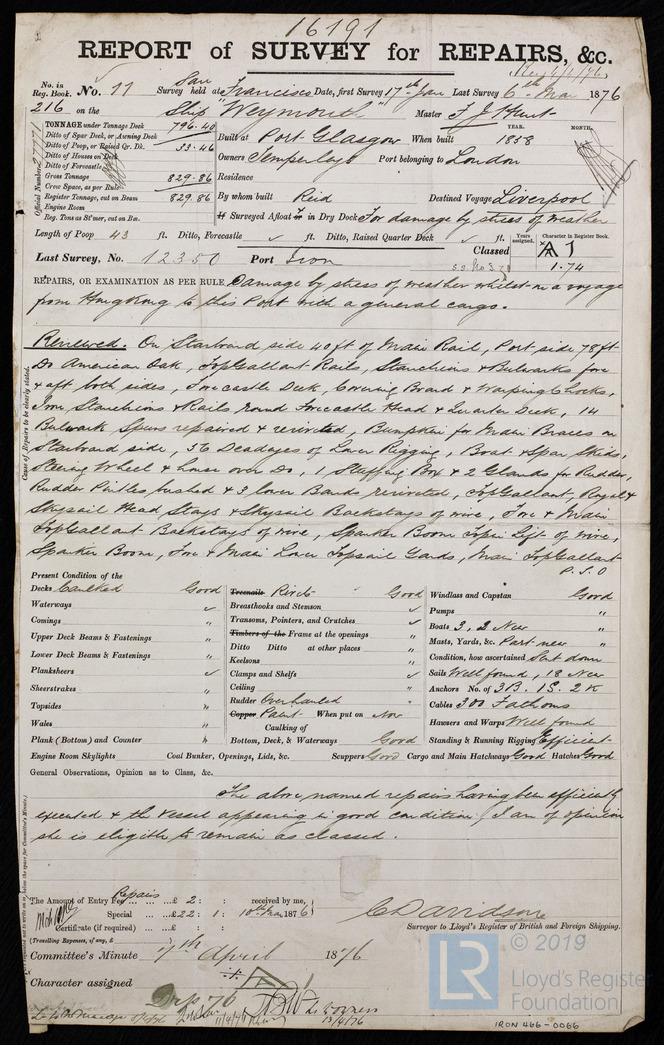 16191
REPORT of SURVEY for REPAIRS, &c.
No. in Reg. Book. No. 77 Survey held at San Francisco Date, first Survey 17th Jan Last Survey 6th Mar 1876
216 on the Ship "Weymouth" Master
TONNAGE under Tonnage Deck 796.40
Ditto of Spar Deck, or Awning Deck
Ditto of Poop, or Raised Qr. Dk. 33.46
Ditto of Houses on Deck
Ditto of Forecastle
Gross Tonnage 829.86
Crew Space, as per Rule
Register Tonnage, cut on Beam 829.86
Engine Room
Reg. Tons as St'mer, cut on Bm.
Official Number
YEAR. MONTH.
Built at Port Glasgow When built 1858
Owners Temperleys Port belonging to London
Residence
By whom built Reid Destined Voyage Liverpool
If Surveyed Afloat or in Dry Dock For damage by stress of weather
Length of Poop 43 ft. Ditto, Forecastle ft. Ditto, Raised Quarter Deck ft.
Classed Years assigned. Character in Register Book. A 1
1.74
Last Survey, No. 12350 Port Iron
REPAIRS, OR EXAMINATION AS PER RULE Damage by stress of weather whilst on a voyage
from Hongkong to this Port with a general cargo.
Cause of Repairs to be clearly stated.
Renewed. On Starboard side 40 ft of Main Rail, Port side 78 ft
Do American Oak, TopGallant Rails, Stanchions & Bulwarks fore
& aft both sides, Forecastle Deck, Covering Board & Warping Chocks,
Iron Stanchions & Rails round Forecastle Head & Quarter Deck, 14
Bulwark Spurs repaired & reriveted, Bumpkin for Main Braces on
Starboard side, 36 Deadeyes of Lower Rigging, Boat & Spar Skids,
Steering Wheel & house over Do, 1 Stuffing Box & 2 Glands for Rudder,
Rudder Pintles bushed & 3 lower Bands reriveted, TopGallant, Royal &
Skysail Head Stays & Skysail Backstays of wire, Fore & Main
TopGallant Backstays of wire, Spanker Boom Topin Lift of wire,
Spanker Boom, Fore & Main Lower Topsail Yards, Main TopGallant
P.T.O
Present Condition of the
Decks Caulked Good
Waterways
Comings "
Upper Deck Beams & Fastenings "
Lower Deck Beams & Fastenings "
Planksheers
Sheerstrakes "
Topsides "
Wales "
Plank (Bottom) and Counter "
Treenails Rivets Good
Breasthooks and Stemson
Transoms, Pointers, and Crutches
Timbers of the Frame at the openings "
Ditto Ditto at other places "
Keelsons "
Clamps and Shelfs
Ceiling "
Rudder Overhauled "
Copper Paint When put on Now
Caulking of
Bottom, Deck, & Waterways Good
Windlass and Capstan Good
Pumps "
Boats 3, 2 New "
Masts, Yards, &c. Part new "
Condition, how ascertained Sent down
Sails Well found, 18 New
Anchors No. of 3B. 1S. 2K
Cables 300 Fathoms
Hawsers and Warps Well found
Standing & Running Rigging Efficient
Engine Room Skylights Coal Bunker, Openings, Lids, &c. Scuppers Good Cargo and Main Hatchways Good Hatches Good
General Observations, Opinion as to Class, &c.
The above named repairs having been efficiently
executed & the vessel appearing in good condition, I am of opinion
she is eligible to remain as classed.
Repairs
The Amount of Entry Fee £ 2 : : received by me,
Special £22 : 1 : 10th Mar 1876
Certificate (if required) £ : :
(Travelling Expenses, if any, £
C Davidson
Surveyor to Lloyd's Register of British and Foreign Shipping.
Committee's Minute 7th April 1876
Character assigned
© 2019
LR
Lloyd's Register
Foundation
IRON 466-0066